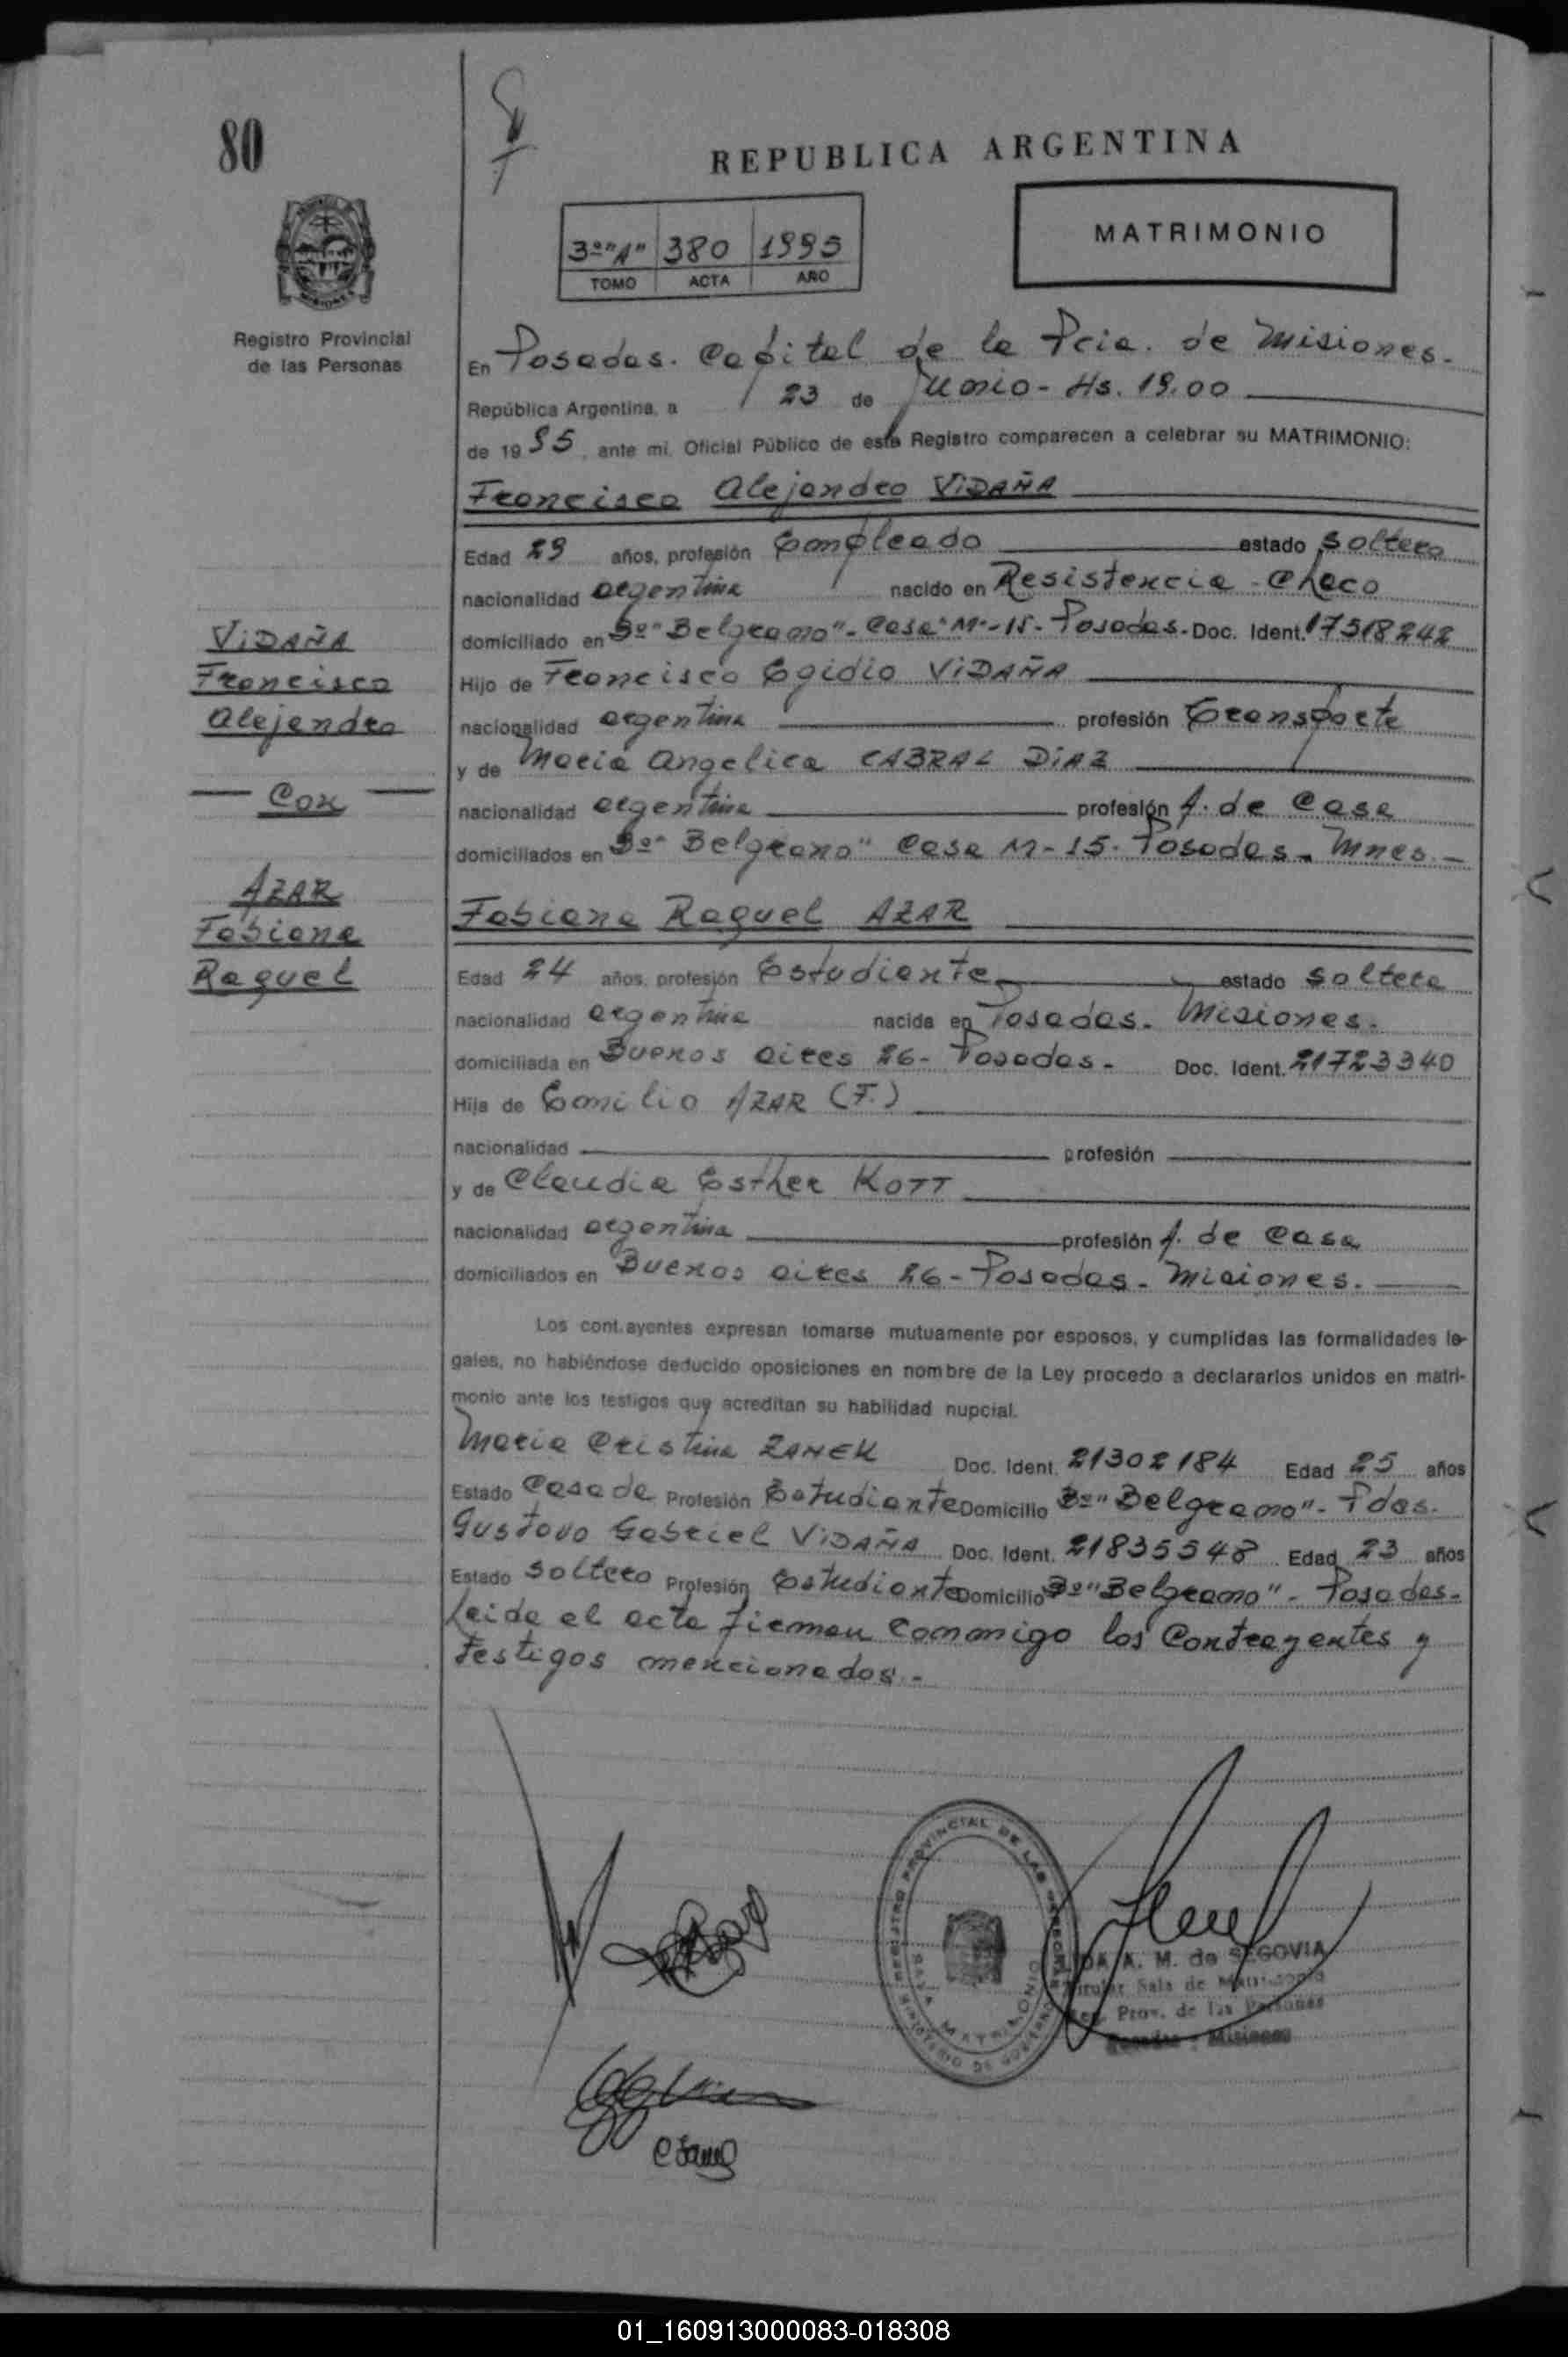 80
REPUBLICA ARGENTINA
MISIONES
Registro Provincial
de las Personas
3º "A" 380 1995
TOMO ACTA AÑO
MATRIMONIO
En Posadas. Capital de la Pcia. de Misiones.-
República Argentina, a 23 de Junio - Hs. 19.00
de 1995, ante mi, Oficial Público de este Registro comparecen a celebrar su MATRIMONIO:
Francisco Alejandro VIDAÑA
Edad 29 años, profesión Empleado estado soltero
nacionalidad argentina nacido en Resistencia - Chaco
domiciliado en Bº "Belgrano" - Casa M-15 - Posadas.- Doc. Ident. 17518242
Hijo de Francisco Egidio VIDAÑA
nacionalidad argentina profesión Transporte
y de Maria Angelica CABRAL DIAZ
nacionalidad argentina profesión A. de Casa
domiciliados en Bº "Belgrano" Casa M-15. Posadas - Mnes.-
VIDAÑA
Francisco
Alejandro
— Con —
AZAR
Fabiana
Raquel
Fabiana Raquel AZAR
Edad 24 años, profesión Estudiante estado soltera
nacionalidad argentina nacida en Posadas. Misiones.
domiciliada en Buenos Aires 26 - Posadas. Doc. Ident. 21723340
Hija de Emilio AZAR (F.)
nacionalidad profesión
y de Claudia Esther KOTT
nacionalidad argentina profesión A. de Casa
domiciliados en Buenos Aires 26 - Posadas - Misiones.
Los contrayentes expresan tomarse mutuamente por esposos, y cumplidas las formalidades le-
gales, no habiéndose deducido oposiciones en nombre de la Ley procedo a declararlos unidos en matri-
monio ante los testigos que acreditan su habilidad nupcial.
Maria Cristina ZANEK Doc. Ident. 21302184 Edad 25 años
Estado Casada Profesión Estudiante Domicilio Bº "Belgrano" - Pdas.
Gustavo Gabriel VIDAÑA Doc. Ident. 21835548 Edad 23 años
Estado soltero Profesión Estudiante Domicilio Bº "Belgrano" - Posadas.
Leida el acta firman conmigo los Contrayentes y
testigos mencionados.-
REGISTRO PROVINCIAL DE LAS PERSONAS
MINISTERIO DE GOBIERNO
SALA MATRIMONIO
A. M. de SEGOVIA
Titular Sala de Matrimonio
Reg. Prov. de las Personas
Posadas - Misiones
01_160913000083-018308